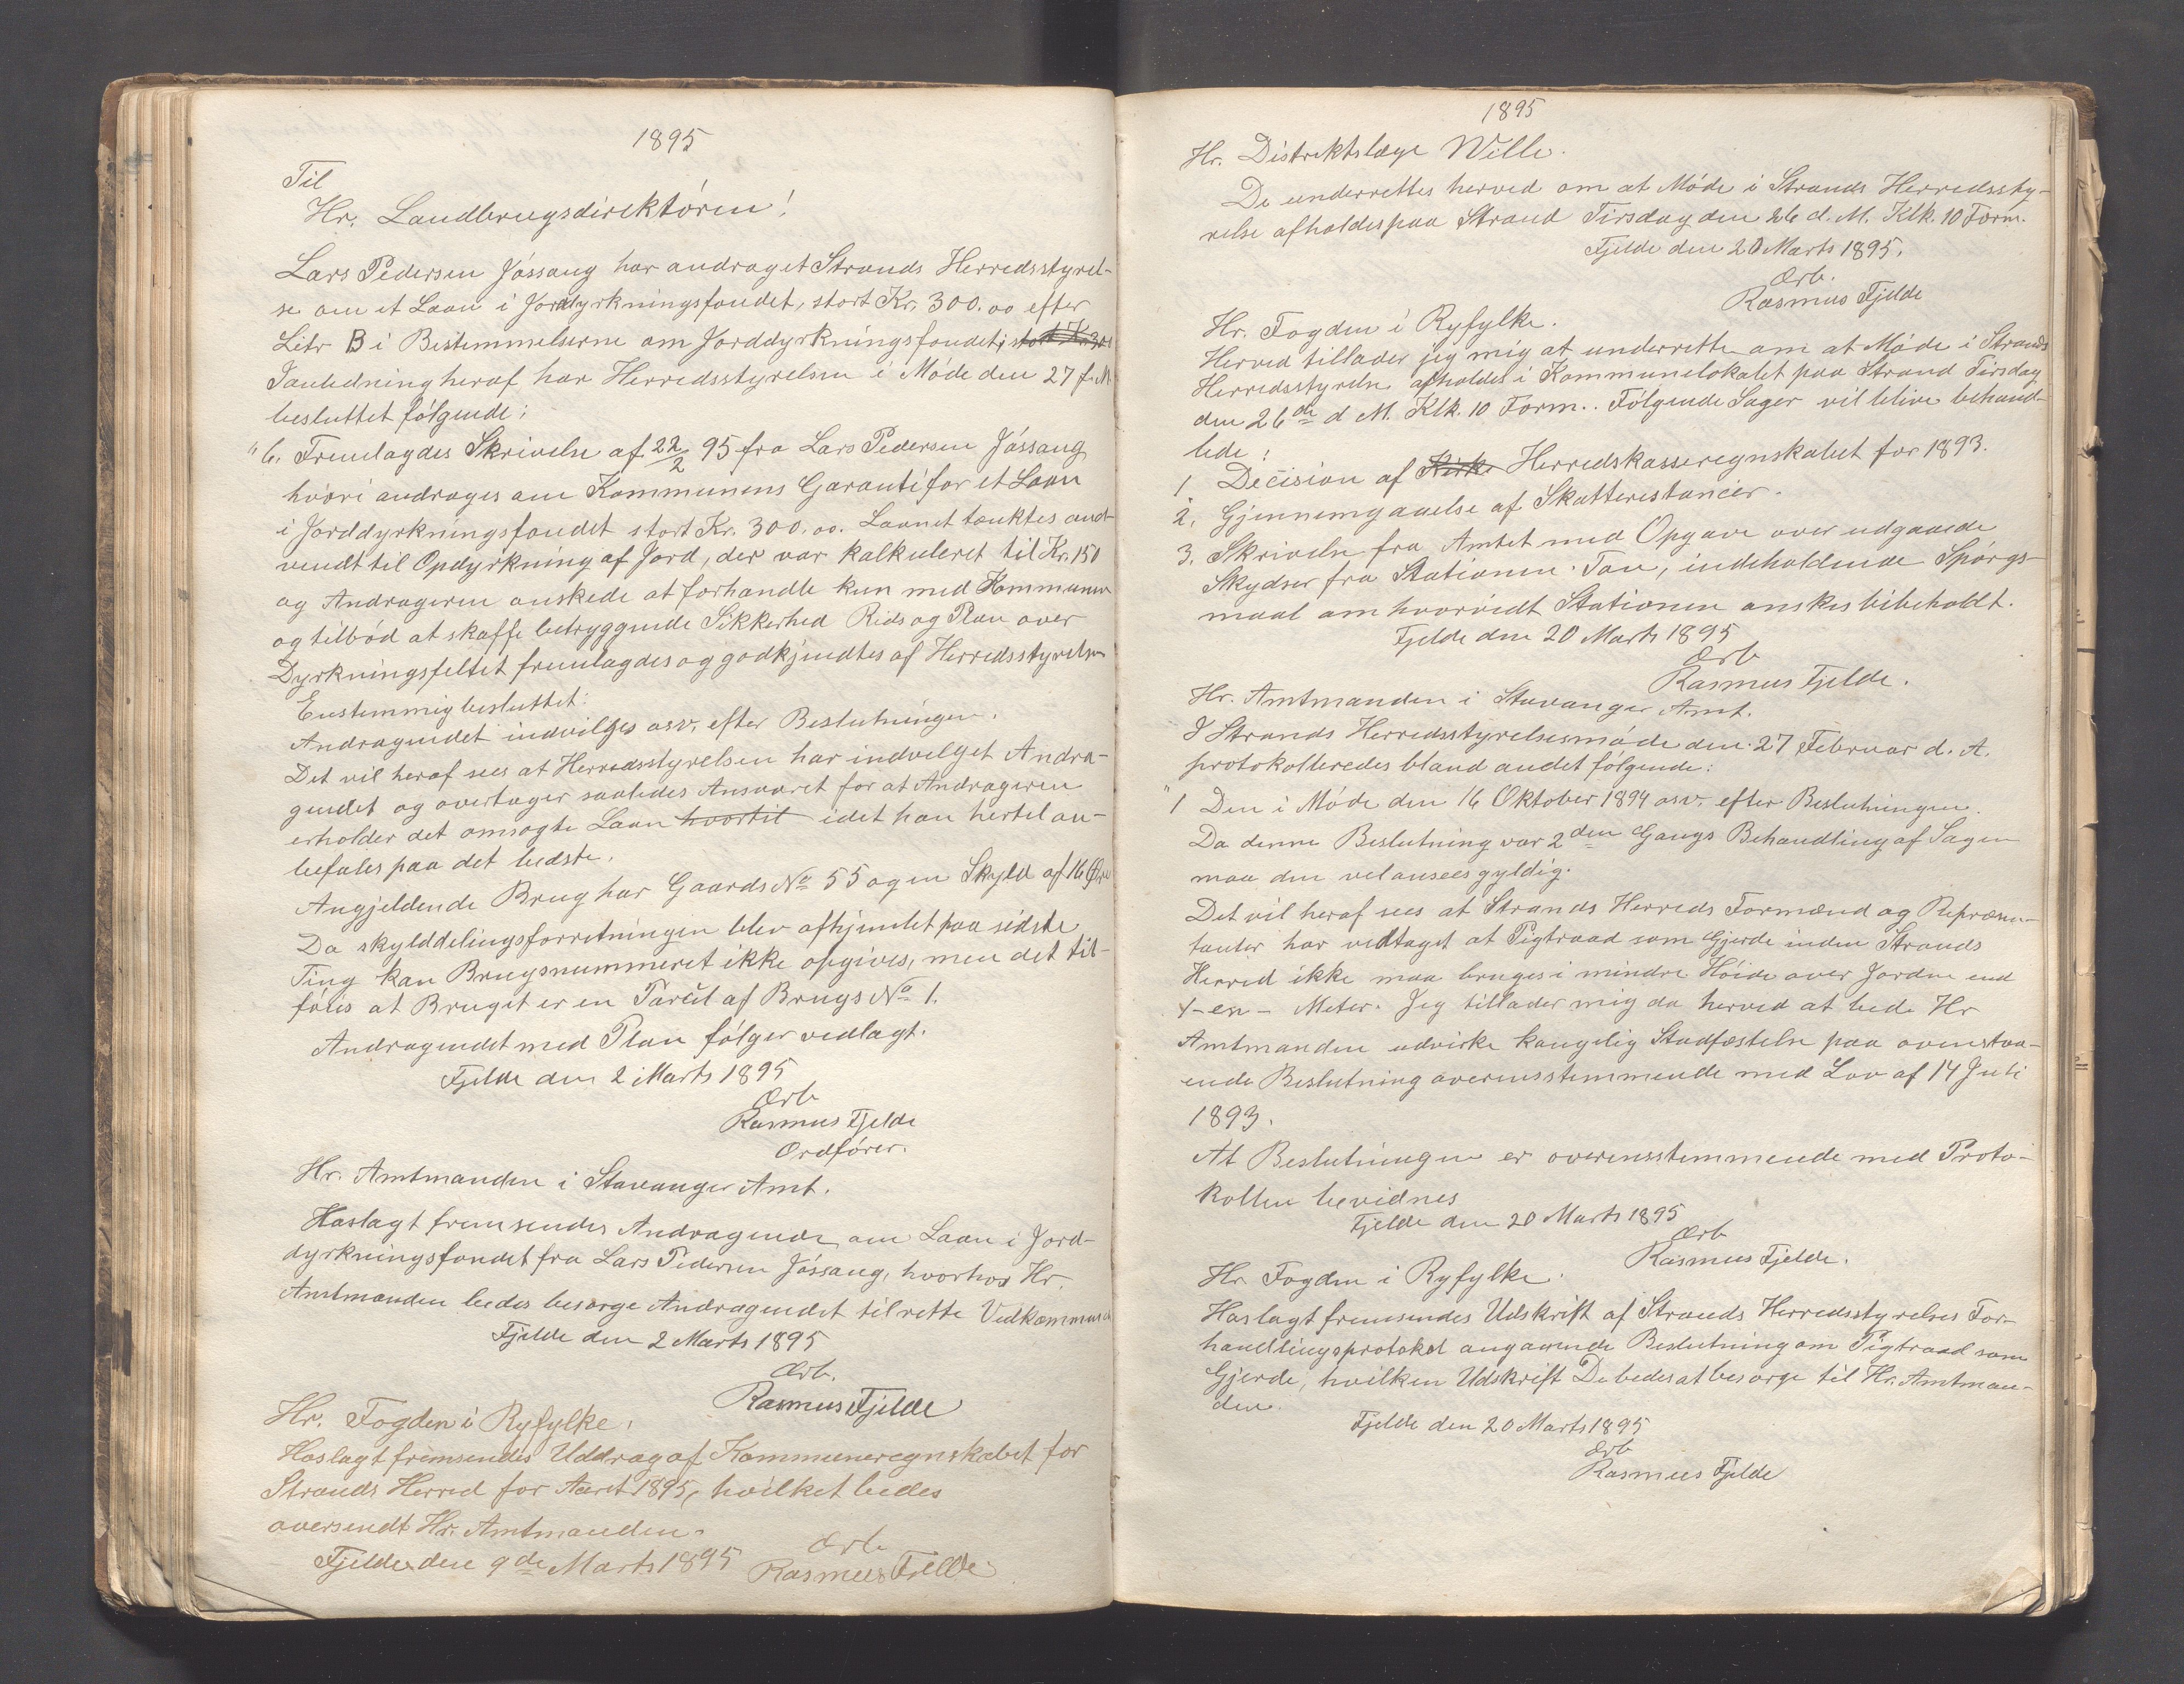 1895
Til
Hr. Landbrugsdirektøren!
Lars Pedersen Jøssang har andraget Strands Herredsstyrel-
se om et Laan i Jorddyrkningsfondet, stort Kr. 300.00 efter
Litr B i Bestemmelserne om Jorddyrkningsfondet, stort Kr. 300
I anledning heraf har Herredsstyrelsen i Møde den 27 f. M.
besluttet følgende:
"6. Fremlagdes Skrivelse af 22/2 95 fra Lars Pedersen Jøssang
hvori andrages om Kommunens Garanti for et Laan
i Jorddyrkningsfondet stort Kr. 300.00. Laanet tænktes and-
vendt til Opdyrkning af Jord, der var kalkuleret til Kr. 150
og Andrageren ønskede at forhandle kun med Kommunen
og tilbød at skaffe betryggende Sikkerhed Rids og Plan over
Dyrkningsfeltet fremlagdes og godkjendtes af Herredsstyrelsen
Enstemmig besluttet:
Andragendet indvilges osv. efter Beslutningen.
Det vil heraf sees at Herredsstyrelsen har indvilget Andra-
gendet og overtager saaledes Ansvaret for at Andrageren
erholder det omsøgte Laan hvortil idet han hertil an-
befales paa det bedste.
Angjeldende Brug har Gaards No 55 og en Skyld af 16 Øre
Da skylddelingsforretningen blev afhjemlet paa sidste
Ting kan Brugsnummeret ikke opgives, men det til-
føies at Bruget er en Parcel af Brugs No 1.
Andragendet med Plan følger vedlagt.
Fjelde den 2 Marts 1895
Ærb
Rasmus Fjelde
Ordfører.
Hr. Amtmanden i Stavanger Amt.
Hoslagt fremsendes Andragende om Laan i Jord-
dyrkningsfondet fra Lars Pedersen Jøssang, hvorhos Hr.
Amtmanden bedes besørge Andragendet til rette Vedkommende
Fjelde den 2 Marts 1895
Ærb.
Rasmus Fjelde
Hr. Fogden i Ryfylke.
Hoslagt fremsendes Uddrag af Kommuneregnskabet for
Strands Herred for Aaret 1895, hvilket bedes
oversendt Hr. Amtmanden.
Fjelde den 9de Marts 1895
Ærb
Rasmus Fjelde
1895
Hr. Distriktslæge Wille.
De underrettes herved om at Møde i Strands Herredssty-
relse afholdes paa Strand Tirsdag den 26 d. M. Klk. 10 Form.
Fjelde den 20 Marts 1895.
Ærb.
Rasmus Fjelde
Hr. Fogden i Ryfylke.
Herved tillader jeg mig at underrette om at Møde i Strands
Herredsstyrelse afholdes i Kommunelokalet paa Strand Tirsdag
den 26de d M. Klk. 10 Form.. Følgende Sager vil blive behand-
lede:
1 Decision af Kirke Herredskasseregnskabet for 1893.
2. Gjennemgaaelse af Skatterestancer.
3. Skrivelse fra Amtet med Opgave over udgaaede
Skydser fra Stationen Tau, indeholdende Spørgs-
maal om hvorvidt Stationen ønskes bibeholdt.
Fjelde den 20 Marts 1895
Ærb
Rasmus Fjelde.
Hr. Amtmanden i Stavanger Amt.
I Strands Herredsstyrelsesmøde den 27 Februar d. A.
protokolleredes bland andet følgende:
"1 Den i Møde den 16 Oktober 1894 osv. efter Beslutningen.
Da denne Beslutning var 2den Gangs Behandling af Sagen
maa den vel ansees gyldig.
Det vil heraf sees at Strands Herreds Formænd og Repræsen-
tanter har vedtaget at Pigtraad som Gjerde inden Strands
Herred ikke maa bruges i mindre Høide over Jorden end
1-en- Meter. Jeg tillader mig da herved at bede Hr
Amtmanden udvirke kongelig Stadfæstelse paa ovenstaa-
ende Beslutning overensstemmende med Lov af 14 Juli
1893.
At Beslutningen er overensstemmende med Proto-
kollen bevidnes
Fjelde den 20 Marts 1895
Ærb
Rasmus Fjelde.
Hr. Fogden i Ryfylke.
Hoslagt fremsendes Udskrift af Strands Herredsstyrelses For-
handlingsprotokol angaaende Beslutning om Pigtraad som
Gjerde, hvilken Udskrift De bedes at besørge til Hr. Amtman-
den.
Fjelde den 20 Marts 1895
Ærb
Rasmus Fjelde